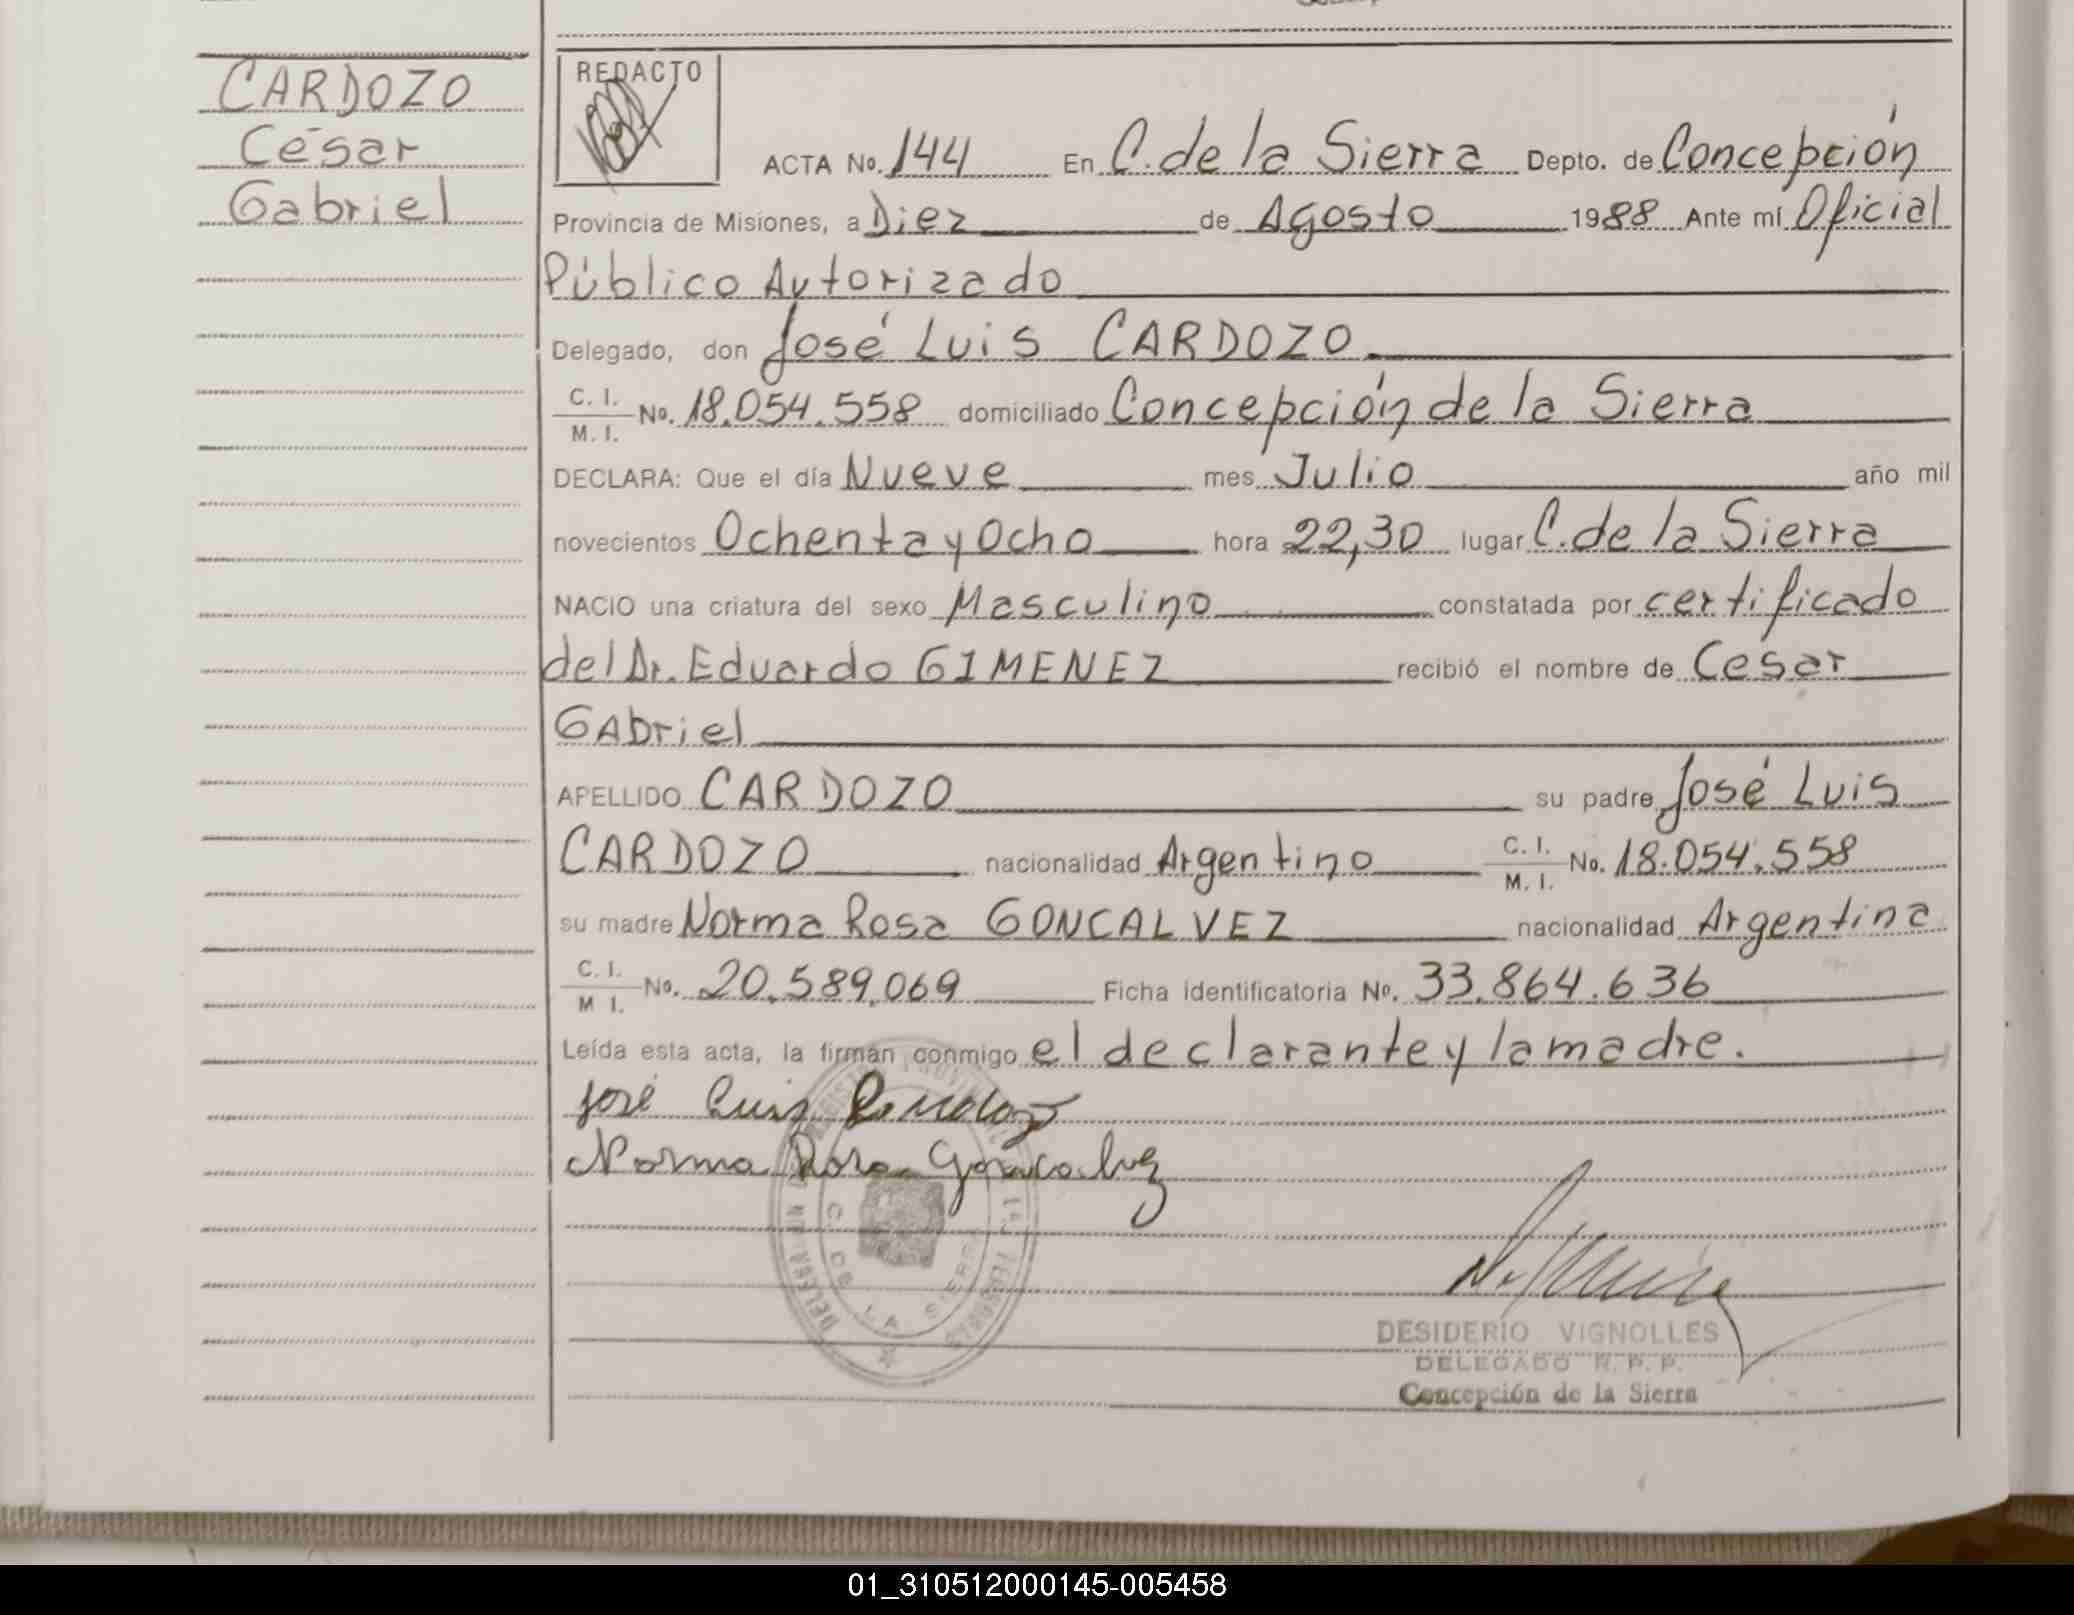 CARDOZO
César
Gabriel
REDACTO
ACTA No. 144 En C. de la Sierra Depto. de Concepción
Provincia de Misiones, a Diez de Agosto 1988 Ante mí Oficial
Público Autorizado
Delegado, don José Luis CARDOZO
C. I.
M. I. No. 18.054.558 domiciliado Concepción de la Sierra
DECLARA: Que el día Nueve mes Julio año mil
novecientos Ochenta y Ocho hora 22,30 lugar C. de la Sierra
NACIO una criatura del sexo Masculino constatada por certificado
del Dr. Eduardo GIMENEZ recibió el nombre de Cesar
GAbriel
APELLIDO CARDOZO su padre José Luis
CARDOZO nacionalidad Argentino C. I. M. I. No. 18.054.558
su madre Norma Rosa GONCALVEZ nacionalidad Argentina
C. I.
M I. No. 20.589.069 Ficha identificatoria No. 33.864.636
Leída esta acta, la firman conmigo el declarante y la madre.
José Luis Cardozo
Norma Rosa Goncalvez
C. DE LA SIERRA
DESIDERIO VIGNOLLES
DELEGADO R. P. P.
Concepción de la Sierra
01_310512000145-005458